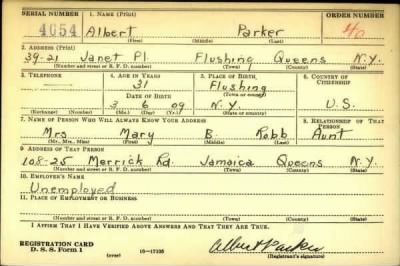 SERIAL NUMBER 1. NAME (Print) ORDER NUMBER
4054 Albert Parker
(First) (Middle) (Last)
2. ADDRESS (Print)
39-21 Janet Pl. Flushing Queens N.Y.
(Number and street or R. F. D. number) (Town) (County) (State)
3. TELEPHONE 4. AGE IN YEARS 5. PLACE OF BIRTH 6. COUNTRY OF CITIZENSHIP
31 Flushing
DATE OF BIRTH (Town or county)
3 6 09 N.Y. U.S.
(Exchange) (Number) (Mo.) (Day) (Yr.) (State or country)
7. NAME OF PERSON WHO WILL ALWAYS KNOW YOUR ADDRESS 8. RELATIONSHIP OF THAT PERSON
Mrs Mary B. Robb Aunt
(Mr., Mrs., Miss) (First) (Middle) (Last)
9. ADDRESS OF THAT PERSON
108-25 Merrick Rd. Jamaica Queens N.Y.
(Number and street or R. F. D. number) (Town) (County) (State)
10. EMPLOYER'S NAME
Unemployed
11. PLACE OF EMPLOYMENT OR BUSINESS
(Number and street or R. F. D. number) (Town) (County) (State)
I AFFIRM THAT I HAVE VERIFIED ABOVE ANSWERS AND THAT THEY ARE TRUE.
REGISTRATION CARD
D. S. S. Form 1 (over) 16-17105 Albert Parker
(Registrant's signature)